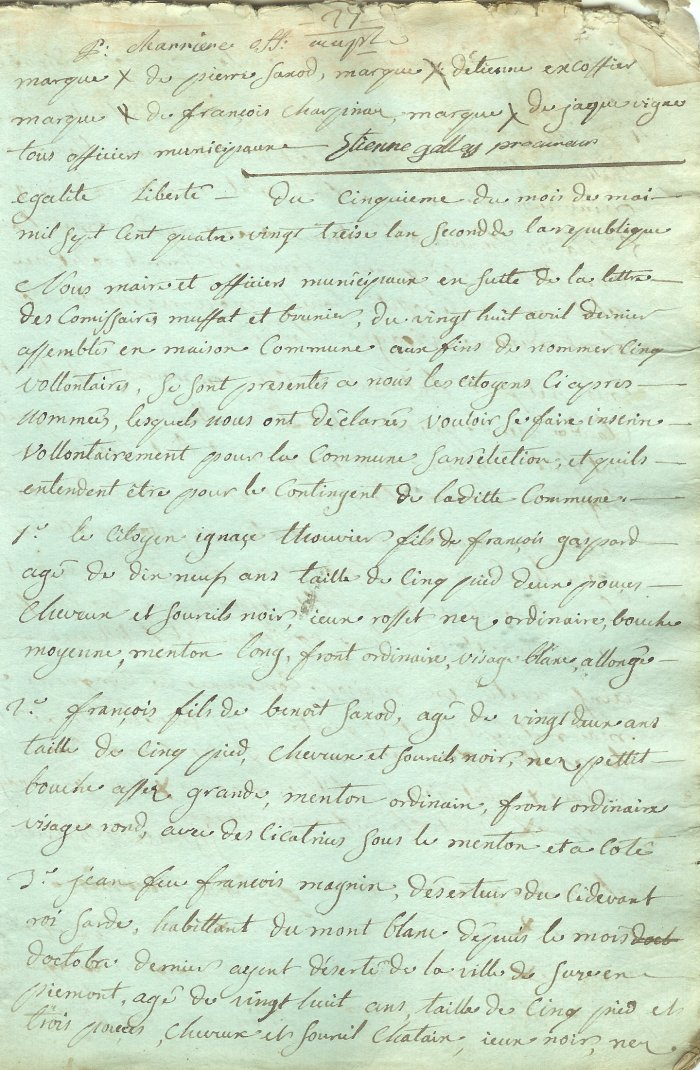 27
p. charriere off. municipl
marque x de pierre saxod, marque x d'étienne excoffier
marque x de françois charpinax, marque x de jaque vigne
tous officiers municipaux Etienne gallay procureur
egalité Liberté – du Cinquieme du mois de mai
mil sept Cent quatre vingt treise lan second de la republique
Nous maire et officiers municipaux en suitte de la lettre
des Comissaires muffat et brunier, du vingt huit avril dernier
assemblés en maison Commune aux fins de nommer Cinq
vollontaires, se sont presentés a nous les citoyens Ci apres
nommés, lesquels nous ont déclarés vouloir se faire inscrire
vollontairement pour la Commune sans élection, et quils
entendent être pour le Contingent de laditte Commune.
1.° le Citoyen ignace thouvier fils de françois gaspard
agé de dix neuf ans taille de Cinq pied deux pouces
Cheveux et sourcils noir, ieux rosset nez ordinaire, bouche
moyenne, menton long, front ordinaire, visage blanc, allongé
2.° françois fils de benoit saxod, agé de vingt deux ans
taille de Cinq pied, Cheveux et sourcils noir, nez pettit
bouche assez grande, menton ordinaire, front ordinaire
visage rond, avec des Cicatrices sous le menton et a Coté
3.° jean feu françois magnin, déserteur du Cidevant
roi sarde, habittant du mont blanc dépuis le mois doct
doctobre dernier ayent déserté de la ville de suze en
piemont, agé de vingt huit ans, taille de Cinq pied et
trois pouces, Cheveux et sourcil Chatain, ieux noir, nez